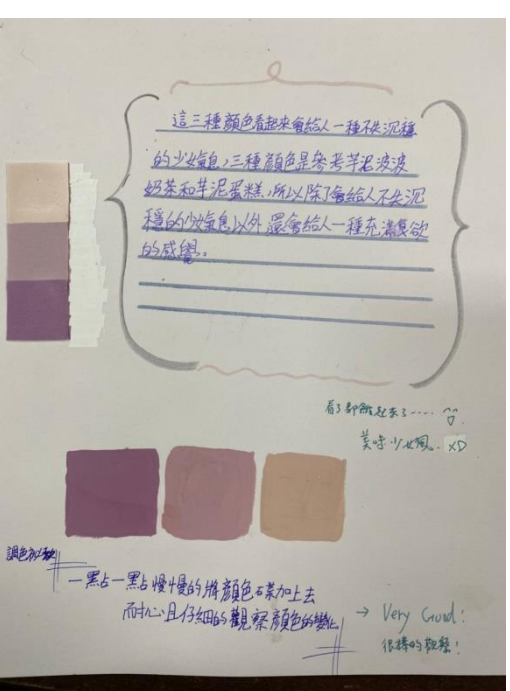 這三種顏色看起來會給人一種不失沉穩
的少女氣息,三種顏色是參考芋泥波波
奶茶和芋泥蛋糕,所以除了會給人不失沉
穩的少女氣息以外還會給人一種充滿食欲
的感覺。
看了都餓起來了.....
美味少女風.. XD
調色
一點一點慢慢的將顏色碟加上去
耐心且仔細的觀察顏色的變化
→ Very Good!
很棒的觀察!